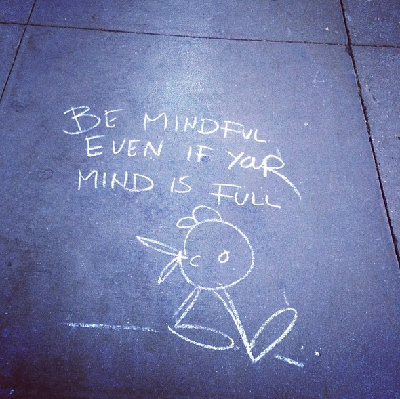 BE MINDFUL
EVEN IF YOUR
MIND IS FULL